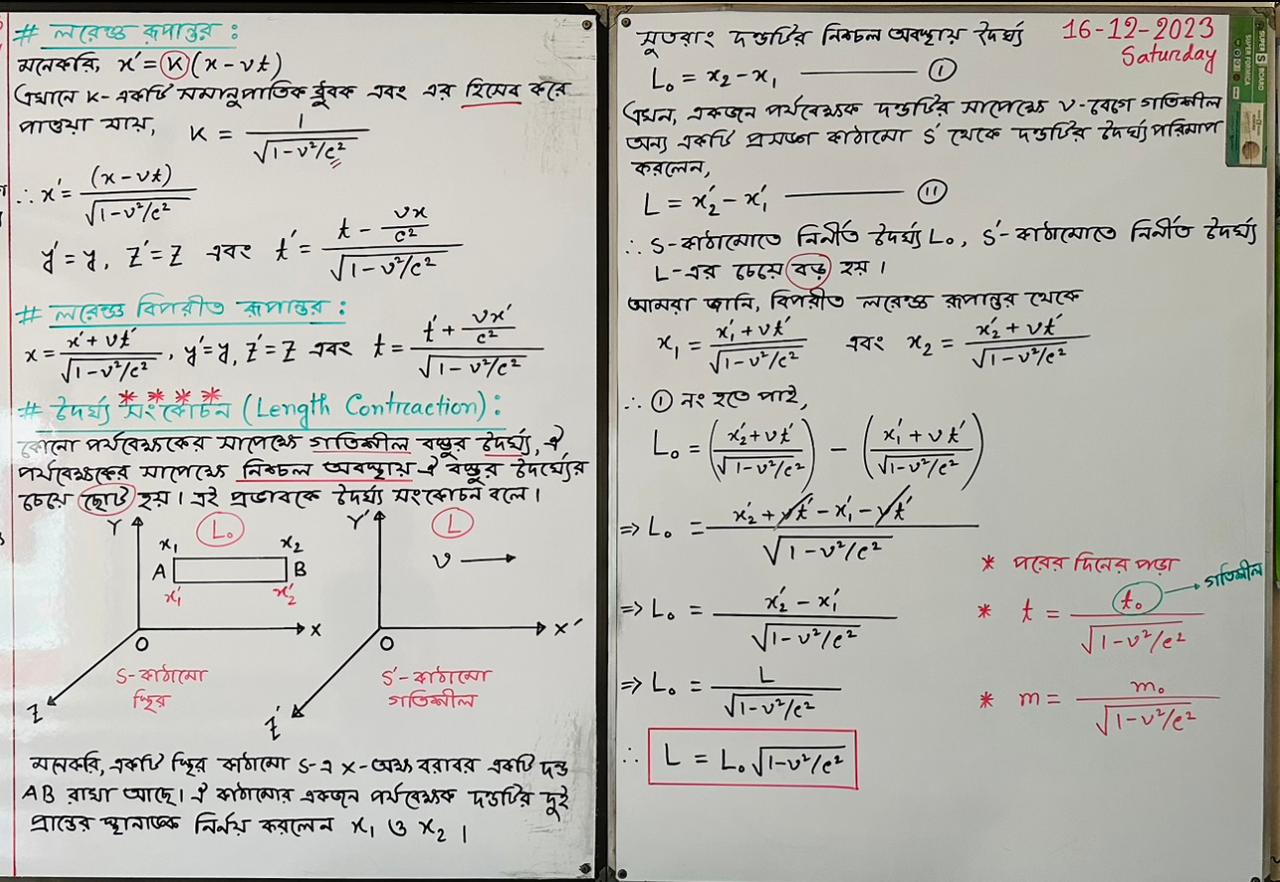 # লরেঞ্জ রূপান্তর :
মনেকরি, x′ = K (x - vt)
এখানে K- একটি সমানুপাতিক ধ্রুবক এবং এর হিসেব করে
পাওয়া যায়, K = 1/√1-v²/c²
∴ x′ = (x-vt)/√1-v²/c²
y′ = y, z′ = z এবং t′ = (t - vx/c²)/√1-v²/c²
# লরেঞ্জ বিপরীত রূপান্তর :
x = (x′+vt′)/√1-v²/c², y′ = y, z′ = z এবং t = (t′ + vx′/c²)/√1-v²/c²
* * * *
# দৈর্ঘ্য সংকোচন (Length Contraction) :
কোনো পর্যবেক্ষকের সাপেক্ষে গতিশীল বস্তুর দৈর্ঘ্য, ঐ
পর্যবেক্ষকের সাপেক্ষে নিশ্চল অবস্থায় ঐ বস্তুর দৈর্ঘ্যের
চেয়ে ছোট হয়। এই প্রভাবকে দৈর্ঘ্য সংকোচন বলে।
Y L₀ Y′ L
x₁ x₂ v
A B
x₁′ x₂′
O X O X′
S-কাঠামো S′-কাঠামো
স্থির গতিশীল
Z Z′
মনেকরি, একটি স্থির কাঠামো S-এ X-অক্ষ বরাবর একটি দন্ড
AB রাখা আছে। ঐ কাঠামোর একজন পর্যবেক্ষক দন্ডটির দুই
প্রান্তের স্থানাঙ্ক নির্নয় করলেন x₁ ও x₂ ।
16-12-2023
Saturday
সুতরাং দন্ডটির নিশ্চল অবস্থায় দৈর্ঘ্য
L₀ = x₂ - x₁ ——— (I)
এখন, একজন পর্যবেক্ষক দন্ডটির সাপেক্ষে v-বেগে গতিশীল
অন্য একটি প্রসঙ্গ কাঠামো S′ থেকে দন্ডটির দৈর্ঘ্য পরিমাপ
করলেন,
L = x₂′ - x₁′ ——— (II)
∴ S-কাঠামোতে নির্নীত দৈর্ঘ্য L₀, S′-কাঠামোতে নির্নীত দৈর্ঘ্য
L-এর চেয়ে বড় হয় ।
আমরা জানি, বিপরীত লরেঞ্জ রূপান্তর থেকে
x₁ = (x₁′ + vt′)/√1-v²/c² এবং x₂ = (x₂′ + vt′)/√1-v²/c²
∴ (I) নং হতে পাই,
L₀ = ((x₂′+vt′)/√1-v²/c²) - ((x₁′ + vt′)/√1-v²/c²)
⇒ L₀ = (x₂′ + vt′ - x₁′ - vt′)/√1-v²/c²
⇒ L₀ = (x₂′ - x₁′)/√1-v²/c²
⇒ L₀ = L/√1-v²/c²
∴ L = L₀√1-v²/c²
* পরের দিনের পড়া
গতিশীল
* t = t₀/√1-v²/c²
* m = m₀/√1-v²/c²
SUPER BOARD
SUPER FORMICA